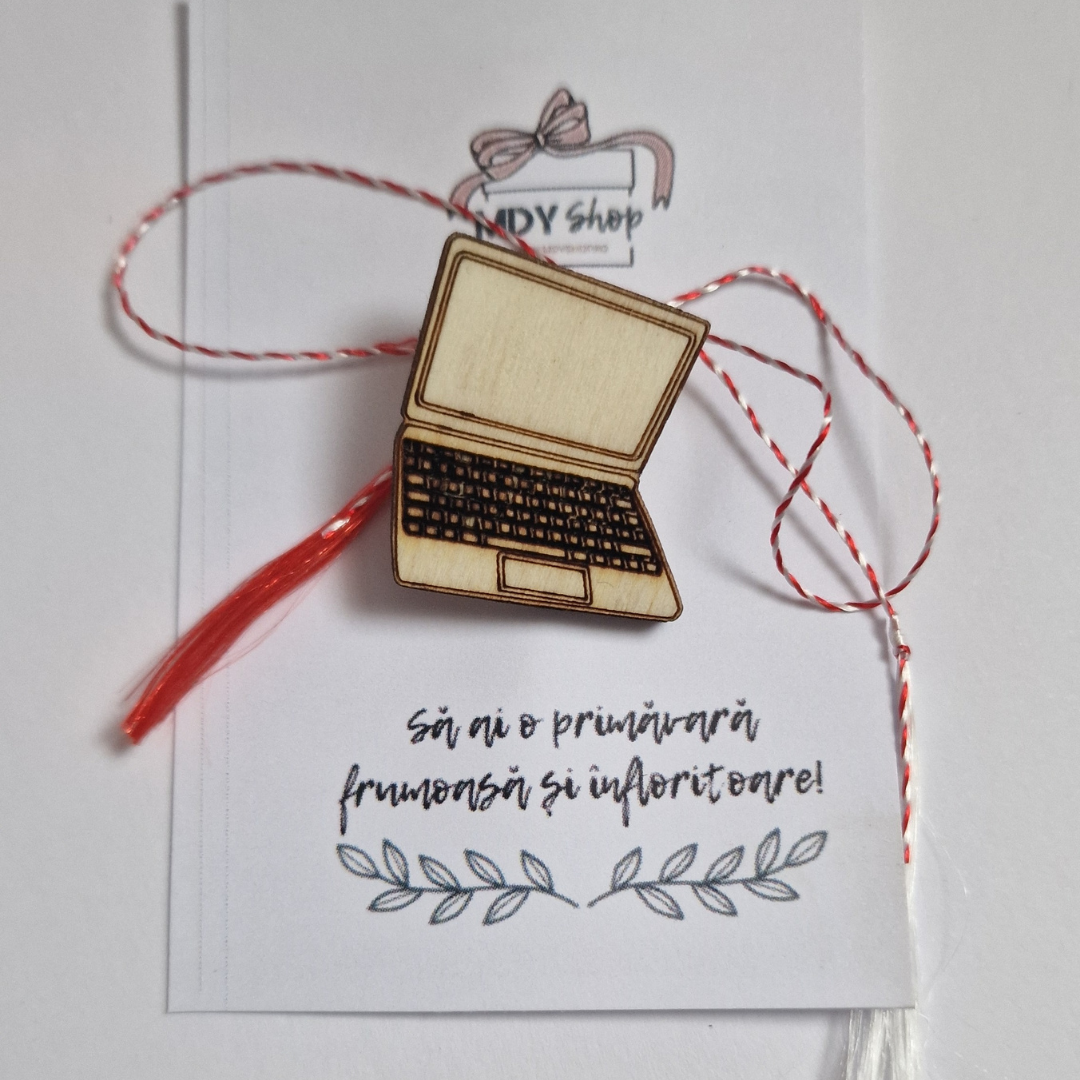 MDY Shop
Să ai o primăvară
frumoasă și înfloritoare!